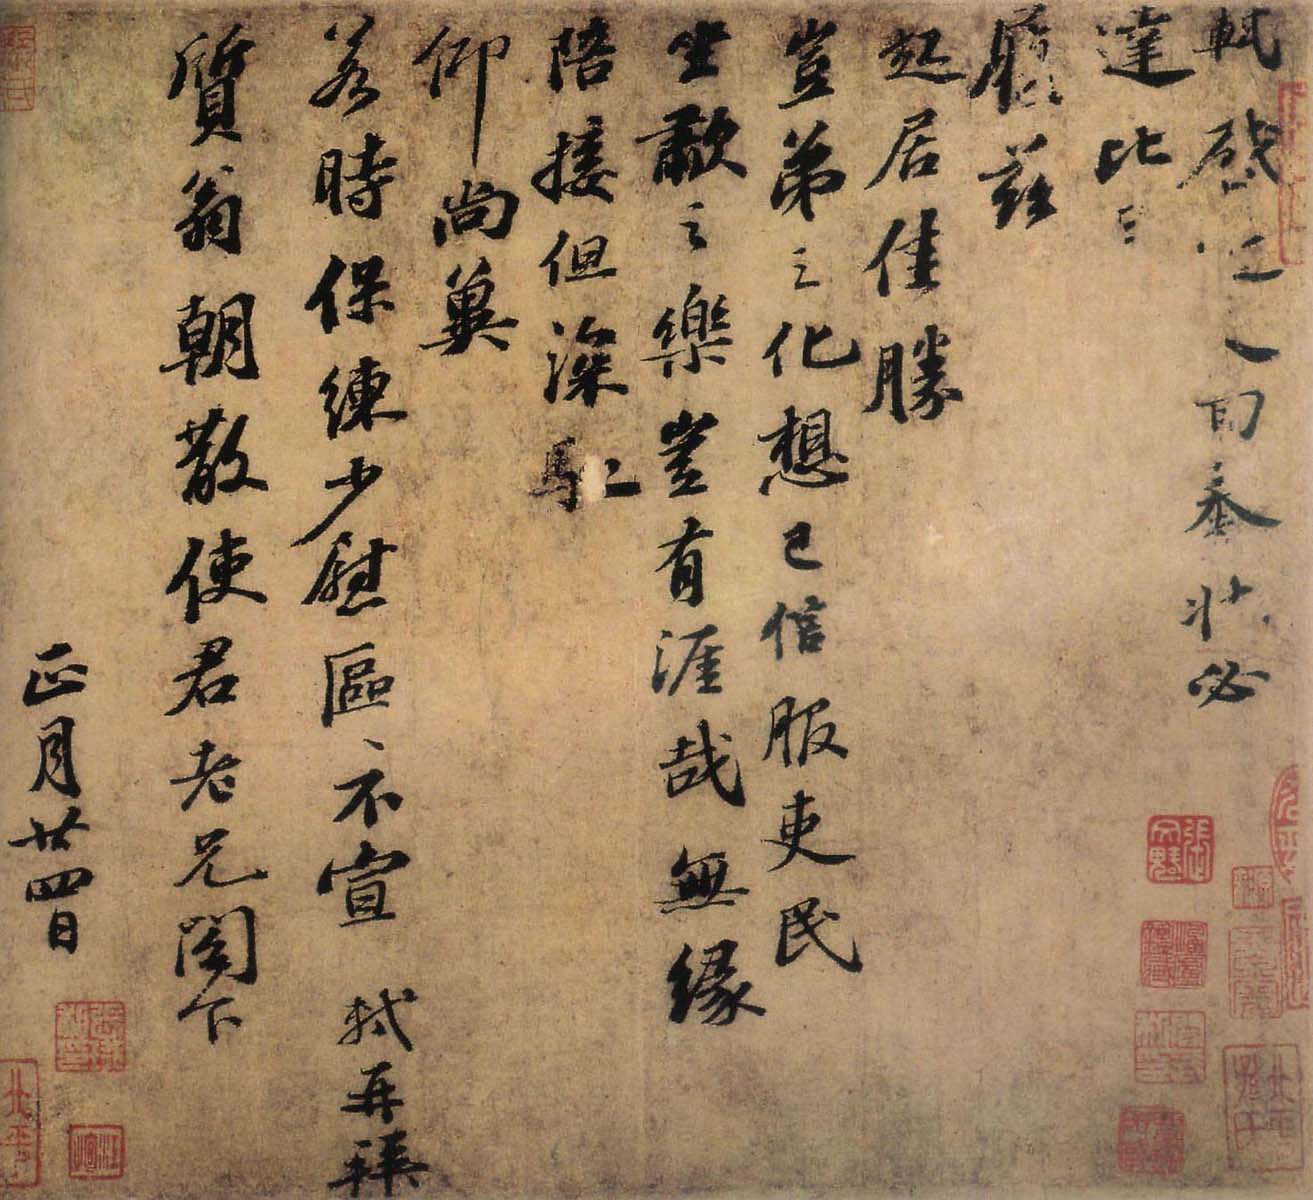 軾啟近人回奉狀必
達比
履茲
起居佳勝
豈弟之化想已信服吏民
坐歗之樂豈有涯哉無緣
陪接但深馳
仰尚冀
若時保練少慰區〻不宣 軾再拜
質翁朝散使君老兄閤下
正月廿四日
張文魁